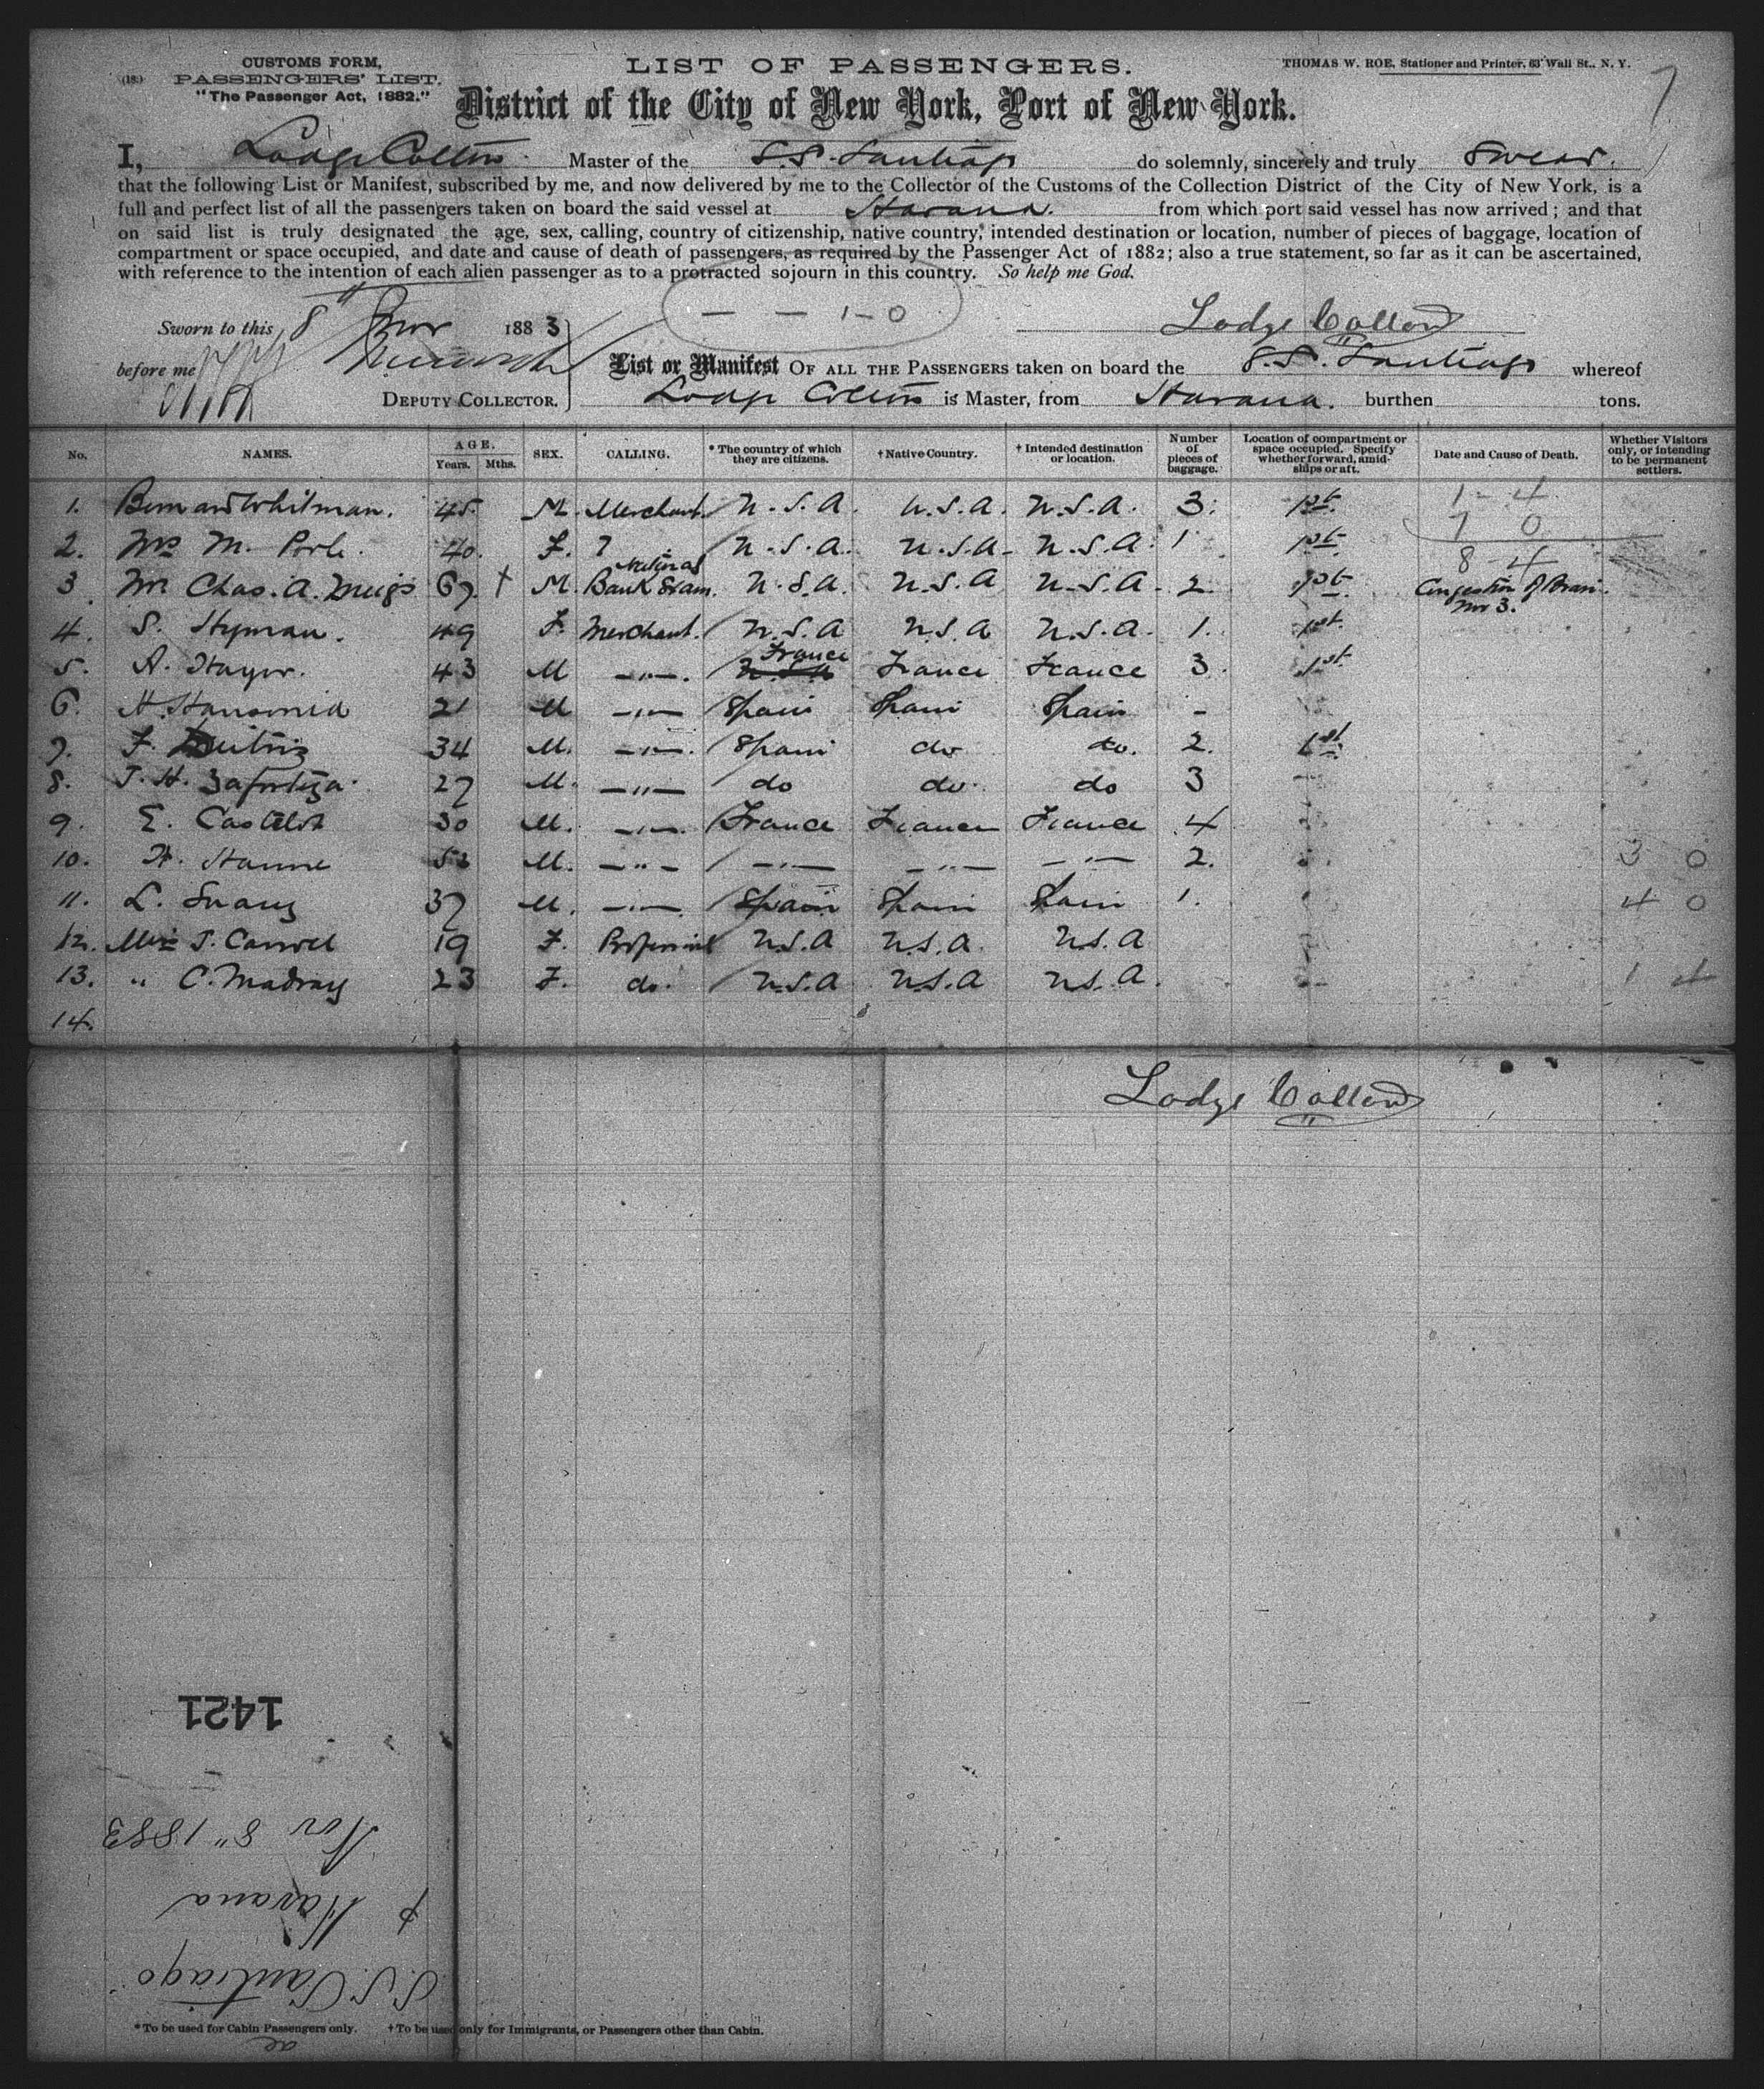 CUSTOMS FORM,
(18.) PASSENGERS' LIST.
"The Passenger Act, 1882."
LIST OF PASSENGERS.
THOMAS W. ROE, Stationer and Printer, 63 Wall St., N. Y.
District of the City of New York, Port of New York.
I, Lodge Colton Master of the S.S. Santiago do solemnly, sincerely and truly swear.
that the following List or Manifest, subscribed by me, and now delivered by me to the Collector of the Customs of the Collection District of the City of New York, is a
full and perfect list of all the passengers taken on board the said vessel at Havana. from which port said vessel has now arrived; and that
on said list is truly designated the age, sex, calling, country of citizenship, native country, intended destination or location, number of pieces of baggage, location of
compartment or space occupied, and date and cause of death of passengers, as required by the Passenger Act of 1882; also a true statement, so far as it can be ascertained,
with reference to the intention of each alien passenger as to a protracted sojourn in this country. So help me God.
— — 1-0
Sworn to this 8" Nov 1883
Lodge Colton
before me
DEPUTY COLLECTOR.
List or Manifest OF ALL THE PASSENGERS taken on board the S.S. Santiago whereof
Lodge Colton is Master, from Havana. burthen tons.
No. NAMES. AGE. Years. Mths. SEX. CALLING. * The country of which they are citizens. † Native Country. † Intended destination or location. Number of pieces of baggage. Location of compartment or space occupied. Specify whether forward, amidships or aft. Date and Cause of Death. Whether Visitors only, or intending to be permanent settlers.
1. Bernard Whitman. 45. M. Merchant. U.S.A. U.S.A. U.S.A. 3. 1st. 1-4
2. Mrs M. 40. F. ? U.S.A. U.S.A. U.S.A. 1 1st. 7 0
8-4
3. Mr Chas. A. Meigs 67. † M. National Bank Exam. U.S.A. U.S.A U.S.A. 2. 1st. Congestion of Brain. Nov 3.
4. S. Hyman. 49 F. Merchant. U.S.A U.S.A U.S.A. 1. 1st.
5. A. 43 M —"—. France France France 3. 1st
6. H. 21 M —"— Spain Spain Spain -
7. F. 34 M. —"—. Spain do do. 2. 1st.
8. J. H. Zaforteza. 27 M. —"— do do. do 3
9. E. 30 M. —"—. France France France 4
10. 52 M. —"— —"— —"— —"— 2. 3 0
11. L. Suarez 37 M. —"—. Spain Spain Spain 1. 4 0
12. Miss J. 19 F. U.S.A U.S.A. U.S.A
13. " C. 23 F. do. U.S.A U.S.A U.S.A. 1 4
14.
Lodge Colton
1421
Nov 8" 1883
Havana
S.S. Santiago
* To be used for Cabin Passengers only. † To be used only for Immigrants, or Passengers other than Cabin.